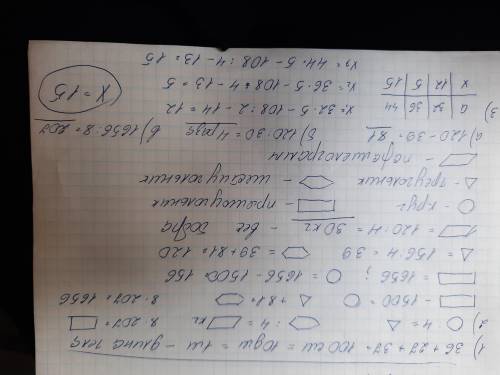 1) 36 + 27 + 37 = 100 см = 10 дм = 1 м - длина тела
2) ○ : 4 = △ ⬡ : 4 = ▱ кг 8 · 207 = ▭
▭ - 1500 = ○ △ + 81 = ⬡ 8 · 207 = 1656
▭ = 1656; ○ = 1656 - 1500 = 156
△ = 156 : 4 = 39 ⬡ = 39 + 81 = 120
▱ = 120 : 4 = 30 кг - вес бобра
○ - круг ▭ - прямоугольник
△ - треугольник ⬡ - шестиугольник
▱ - параллелограмм
а) 120 - 39 = 81 б) 120 : 30 = 4 раза в) 1656 : 8 = 207
3) a 32 36 44
x 12 5 15
x₁ = 32 · 5 - 108 : 2 - 14 = 12
x₂ = 36 · 5 - 108 : 4 - 13 = 5
x₃ = 44 · 5 - 108 : 4 - 13 = 15
x = 15